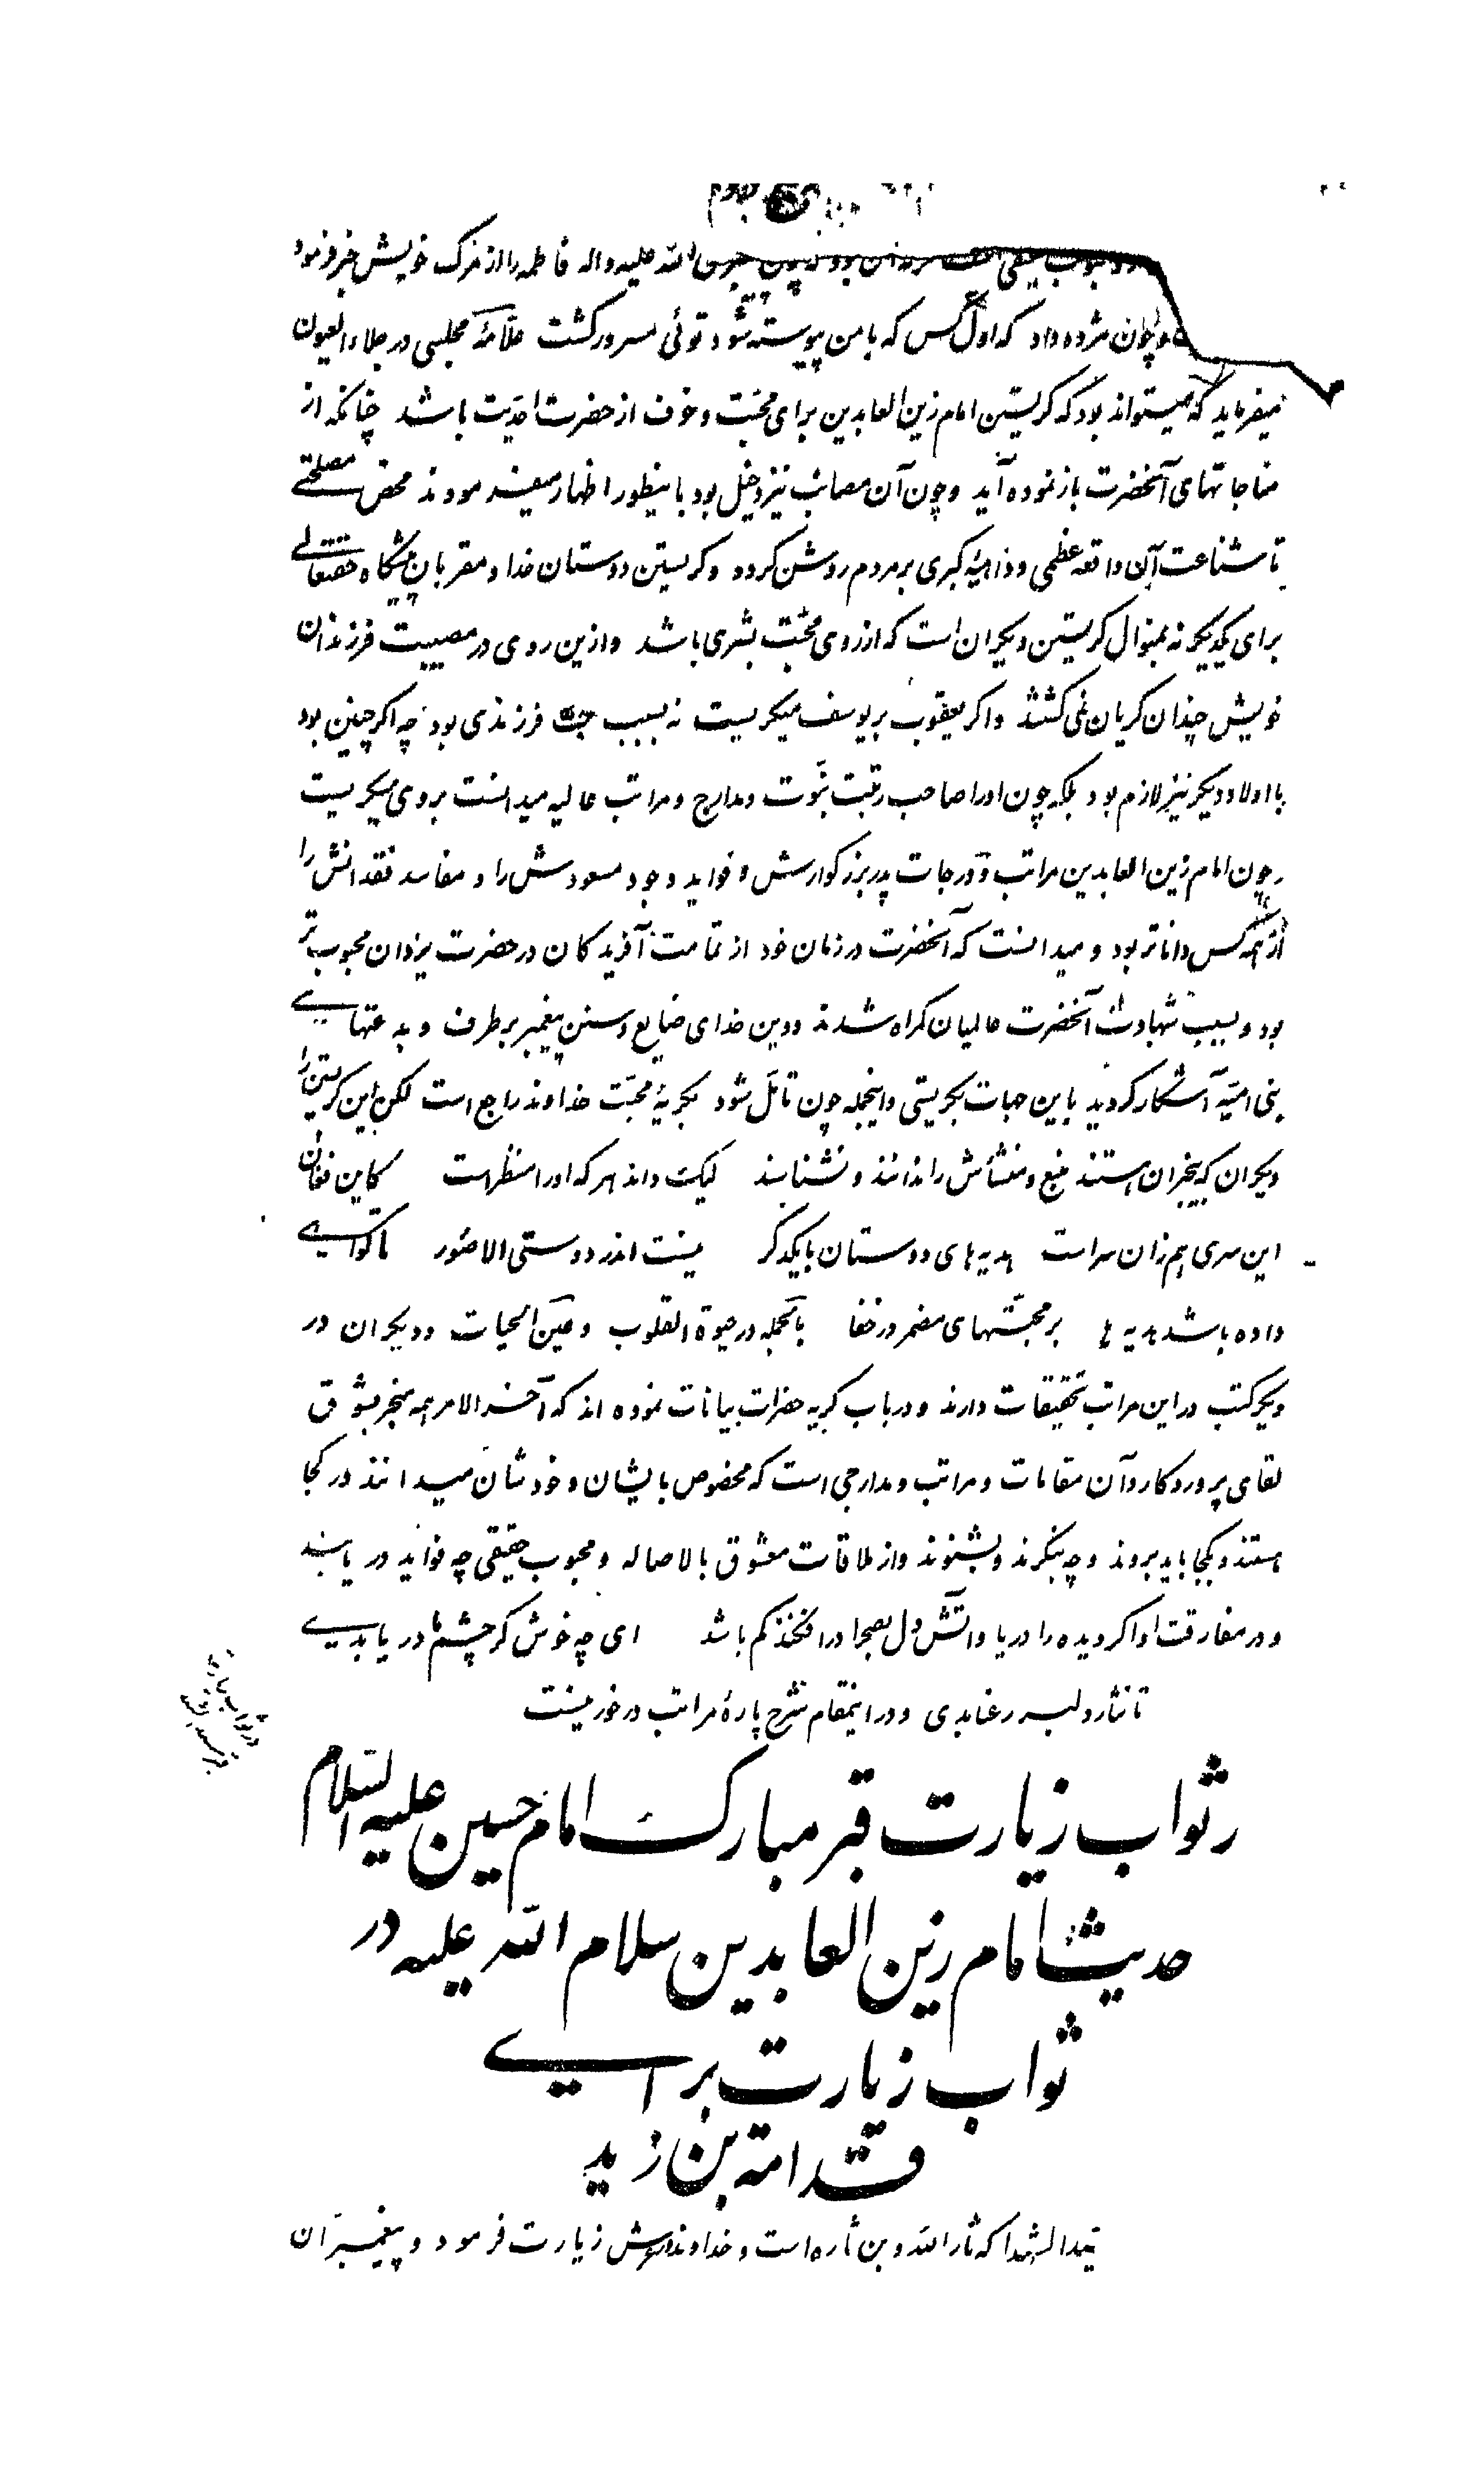 محبوب حقیقی الله علیه واله فاطمه را از مرک خویش خبر فرمود
و چون مژده داد که اول کس که با من پیوسته شود توئی مسرور کشت علامهٔ مجلسی در جلاء العیون
میفرماید که میتواند بود که کریستن امام زین العابدین برای محبت و خوف از حضرت احدیت باشد چنانکه از
مناجاتهای آنحضرت باز نموده آید و چون آن مصائب نیز دخیل بود باینطور اظهار میفرمودند محض مصلحتی
تا شناعت آن واقعه عظمی و داهیهٔ کبری بر مردم روشن کردد و کریستن دوستان خدا و مقربان پیشکاه حقتعالی
برای یکدیکر نه بمنوال کریستن دیکران است که از روی محبت بشری باشد و ازین روی در مصیبت فرزندان
خویش چندان کریان نمی کشتند و اکر یعقوب بر یوسف میکریست نه بسبب محبت فرزندی بود چه اکر چنین بود
با اولاد دیکر نیز لازم بود بلکه چون او را صاحب رتبت نبوت و مدارج و مراتب عالیه میدانست بروی میکریست
و چون امام زین العابدین مراتب و درجات پدر بزرکوارش و فواید وجود مسعودش را و مفاسد فقدانش را
از همه کس داناتر بود و میدانست که آنحضرت در زمان خود از تمامت آفریدکان در حضرت یزدان محبوب تر
بود و بسبب شهادت آنحضرت عالمیان کمراه شدند و دین خدای ضایع و سنن پیغمبر برطرف و بدعتهای
بنی امیه آشکار کردید باین جهات بکریستی و اینجمله چون تامل شود بکریهٔ محبت خداوند راجع است لکن این کریستن را
دیکران که بیخبران هستند منبع و منشأش را ندانند و نشناسند لیک داند هر که او را منظرست کاین فغان
این سری هم زان سر است هدیه های دوستان بایکدکر نیست اندر دوستی الا صور تا کواهی
داده باشد هدیه ها بر محبتهای مضمر در خفا بالجمله در حیوة القلوب و عین الحیات و دیکران در
دیکر کتب در این مراتب تحقیقات دارند و در باب کریه حضرات بیانات نموده اند که آخر الامر همه منجر بشوق
لقای پروردکار و آن مقامات و مراتب و مدارجی است که مخصوص بایشان و خودشان میدانند در کجا
هستند و بکجا باید بروند و چه بنکرند و بشنوند و از ملاقات معشوق بالاصاله و محبوب حقیقی چه فواید دریابند
و در مفارقت او اکر دیده را دریا و آتش دل بصحرا درافکنند کم باشد ای چه خوش کر چشم ما دریا بدی
تا نثار دلبر رعنا بدی و در اینمقام شرح پارهٔ مراتب درخور نیست
در ثواب زیارت قبر مبارک امام حسین علیه السلام
حدیث امام زین العابدین سلام الله علیه در
ثواب زیارت برای
قدامة بن زید
سید الشهدا که ثار الله و بن ثاره است و خداوندورش زیارت فرمود و پیغمبران